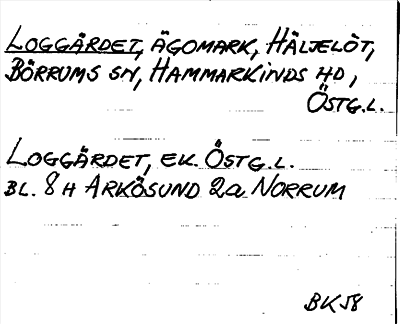 LOGGÄRDET, ÄGOMARK, HÄLJELÖT,
BÖRRUMS SN, HAMMARKINDS HD,
ÖSTG.L.
LOGGÄRDET, EK. ÖSTG.L.
BL. 8 H ARKÖSUND 2a NORRUM
BK58